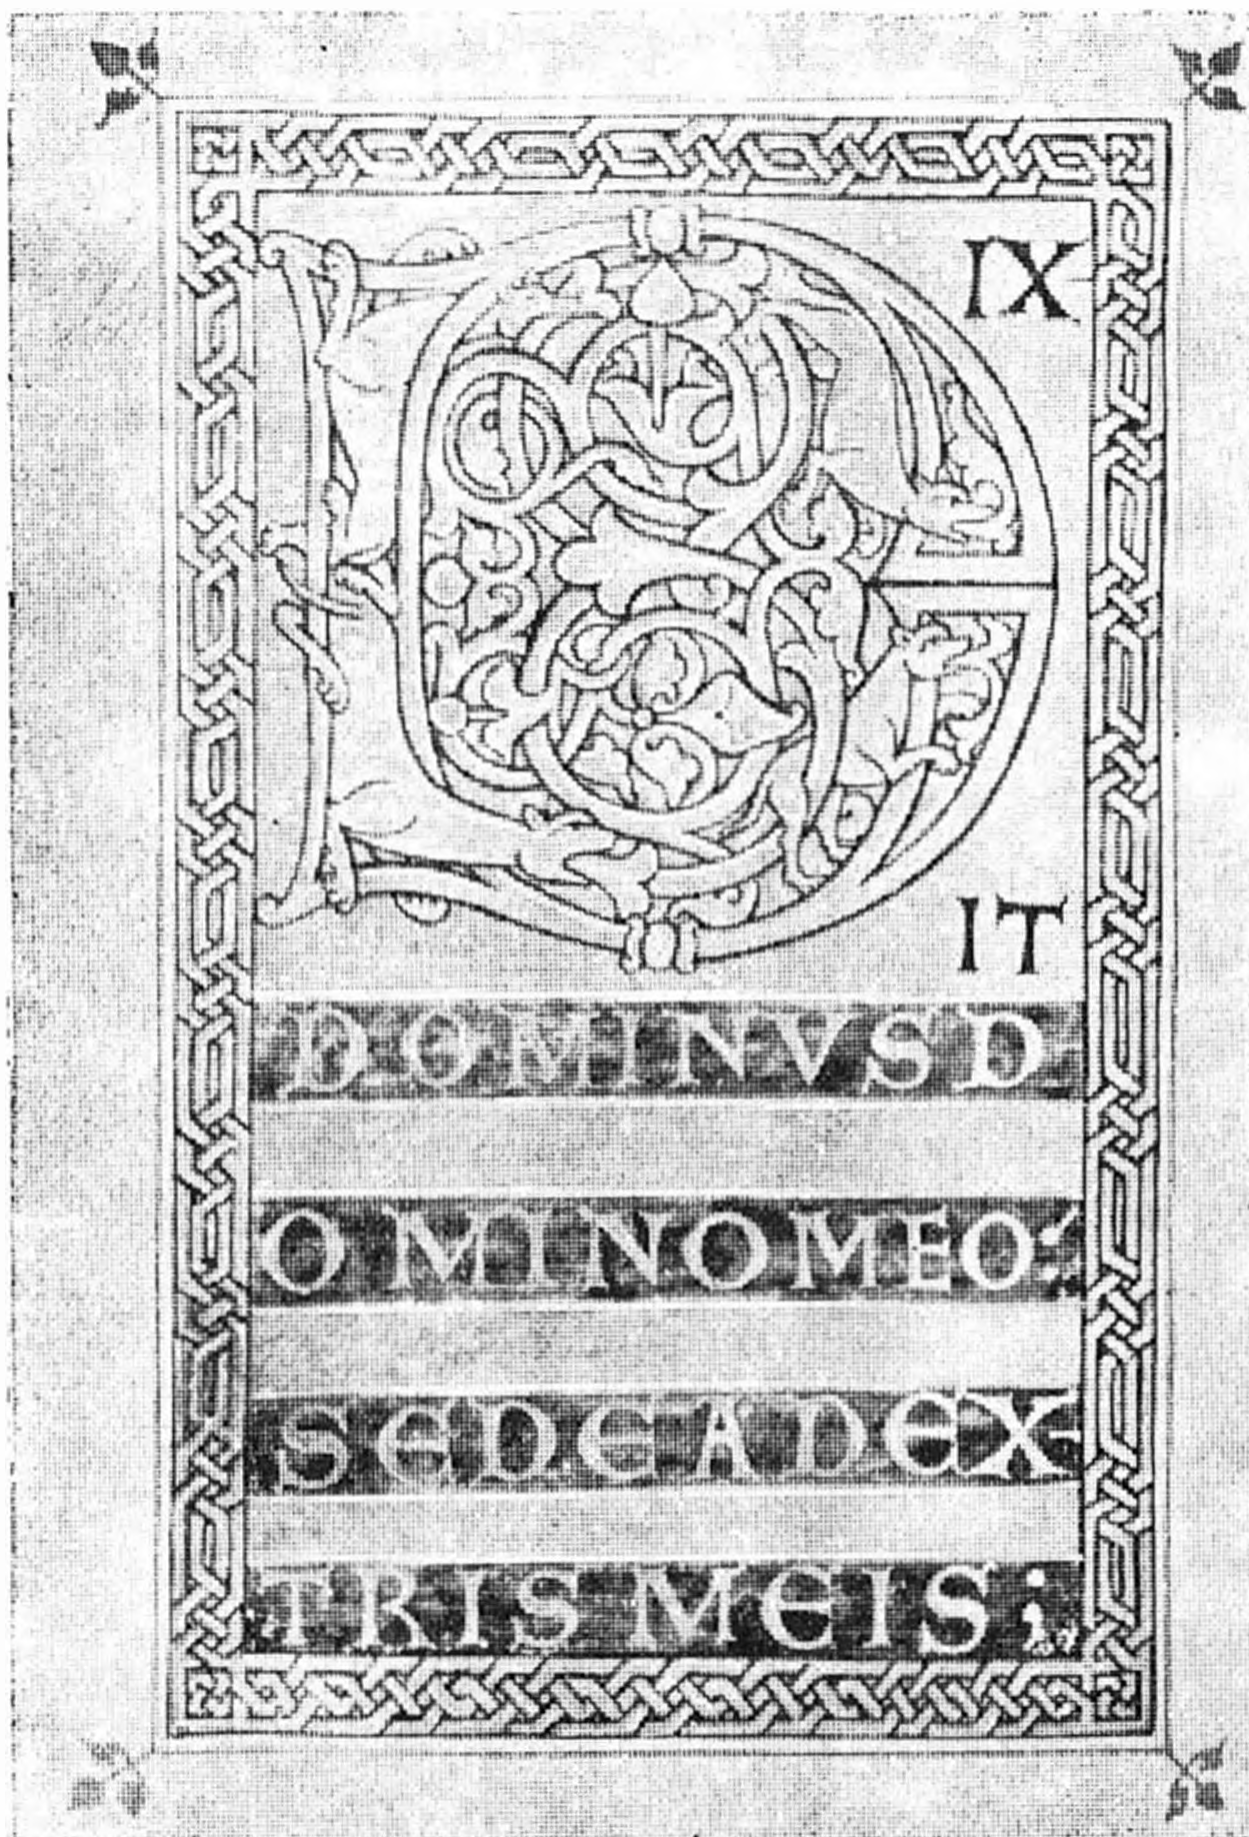 DIX
IT
DOMINVS D
OMINO MEO:
SEDE A DEX
TRIS MEIS;